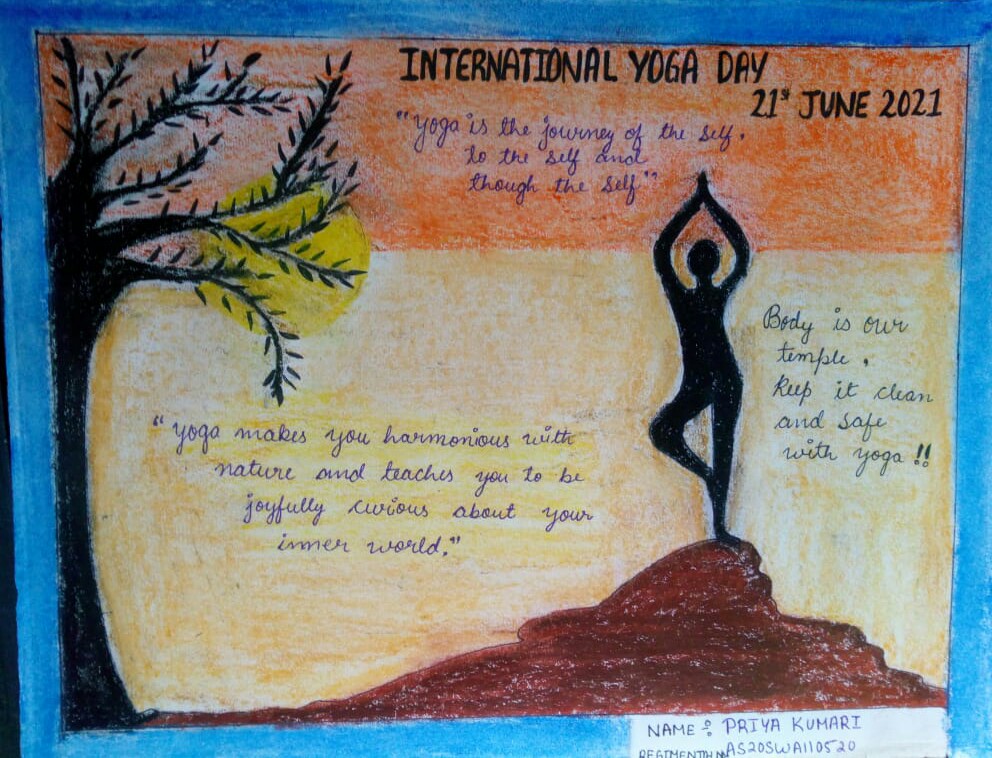 INTERNATIONAL YOGA DAY
21st JUNE 2021
"Yoga is the journey of the self.
to the self and
though the self"
Body is our
temple.
Keep it clean
and safe
with yoga !!
"Yoga makes you harmonious with
nature and teaches you to be
joyfully curious about your
inner world."
NAME : PRIYA KUMARI
AS20SWA110520